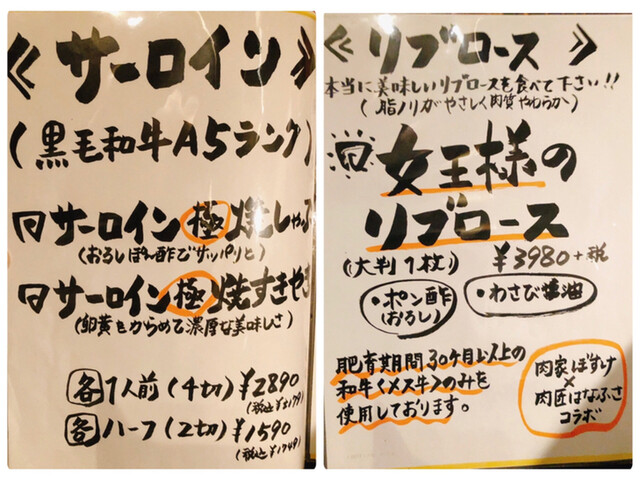 《サーロイン》
(黒毛和牛A5ランク)
サーロイン極焼しゃぶ
(おろしぽん酢でサッパリと)
サーロイン極焼すきやき
(卵黄をからめて濃厚な美味しさ)
各1人前(4切)¥2890
(税込¥3179)
各ハーフ(2切)¥1590
(税込¥1749)
《リブロース》
本当に美味しいリブロースを食べて下さい!!
(脂ノリがやさしく肉質やわらか)
女王様の
リブロース
(大判1枚) ¥3980+税
・ポン酢
(おろし)
・わさび醤油
肥育期間30ケ月以上の
和牛<メス牛>のみを
使用しております。
肉家ぼすけ
×
肉匠はなふさ
コラボ